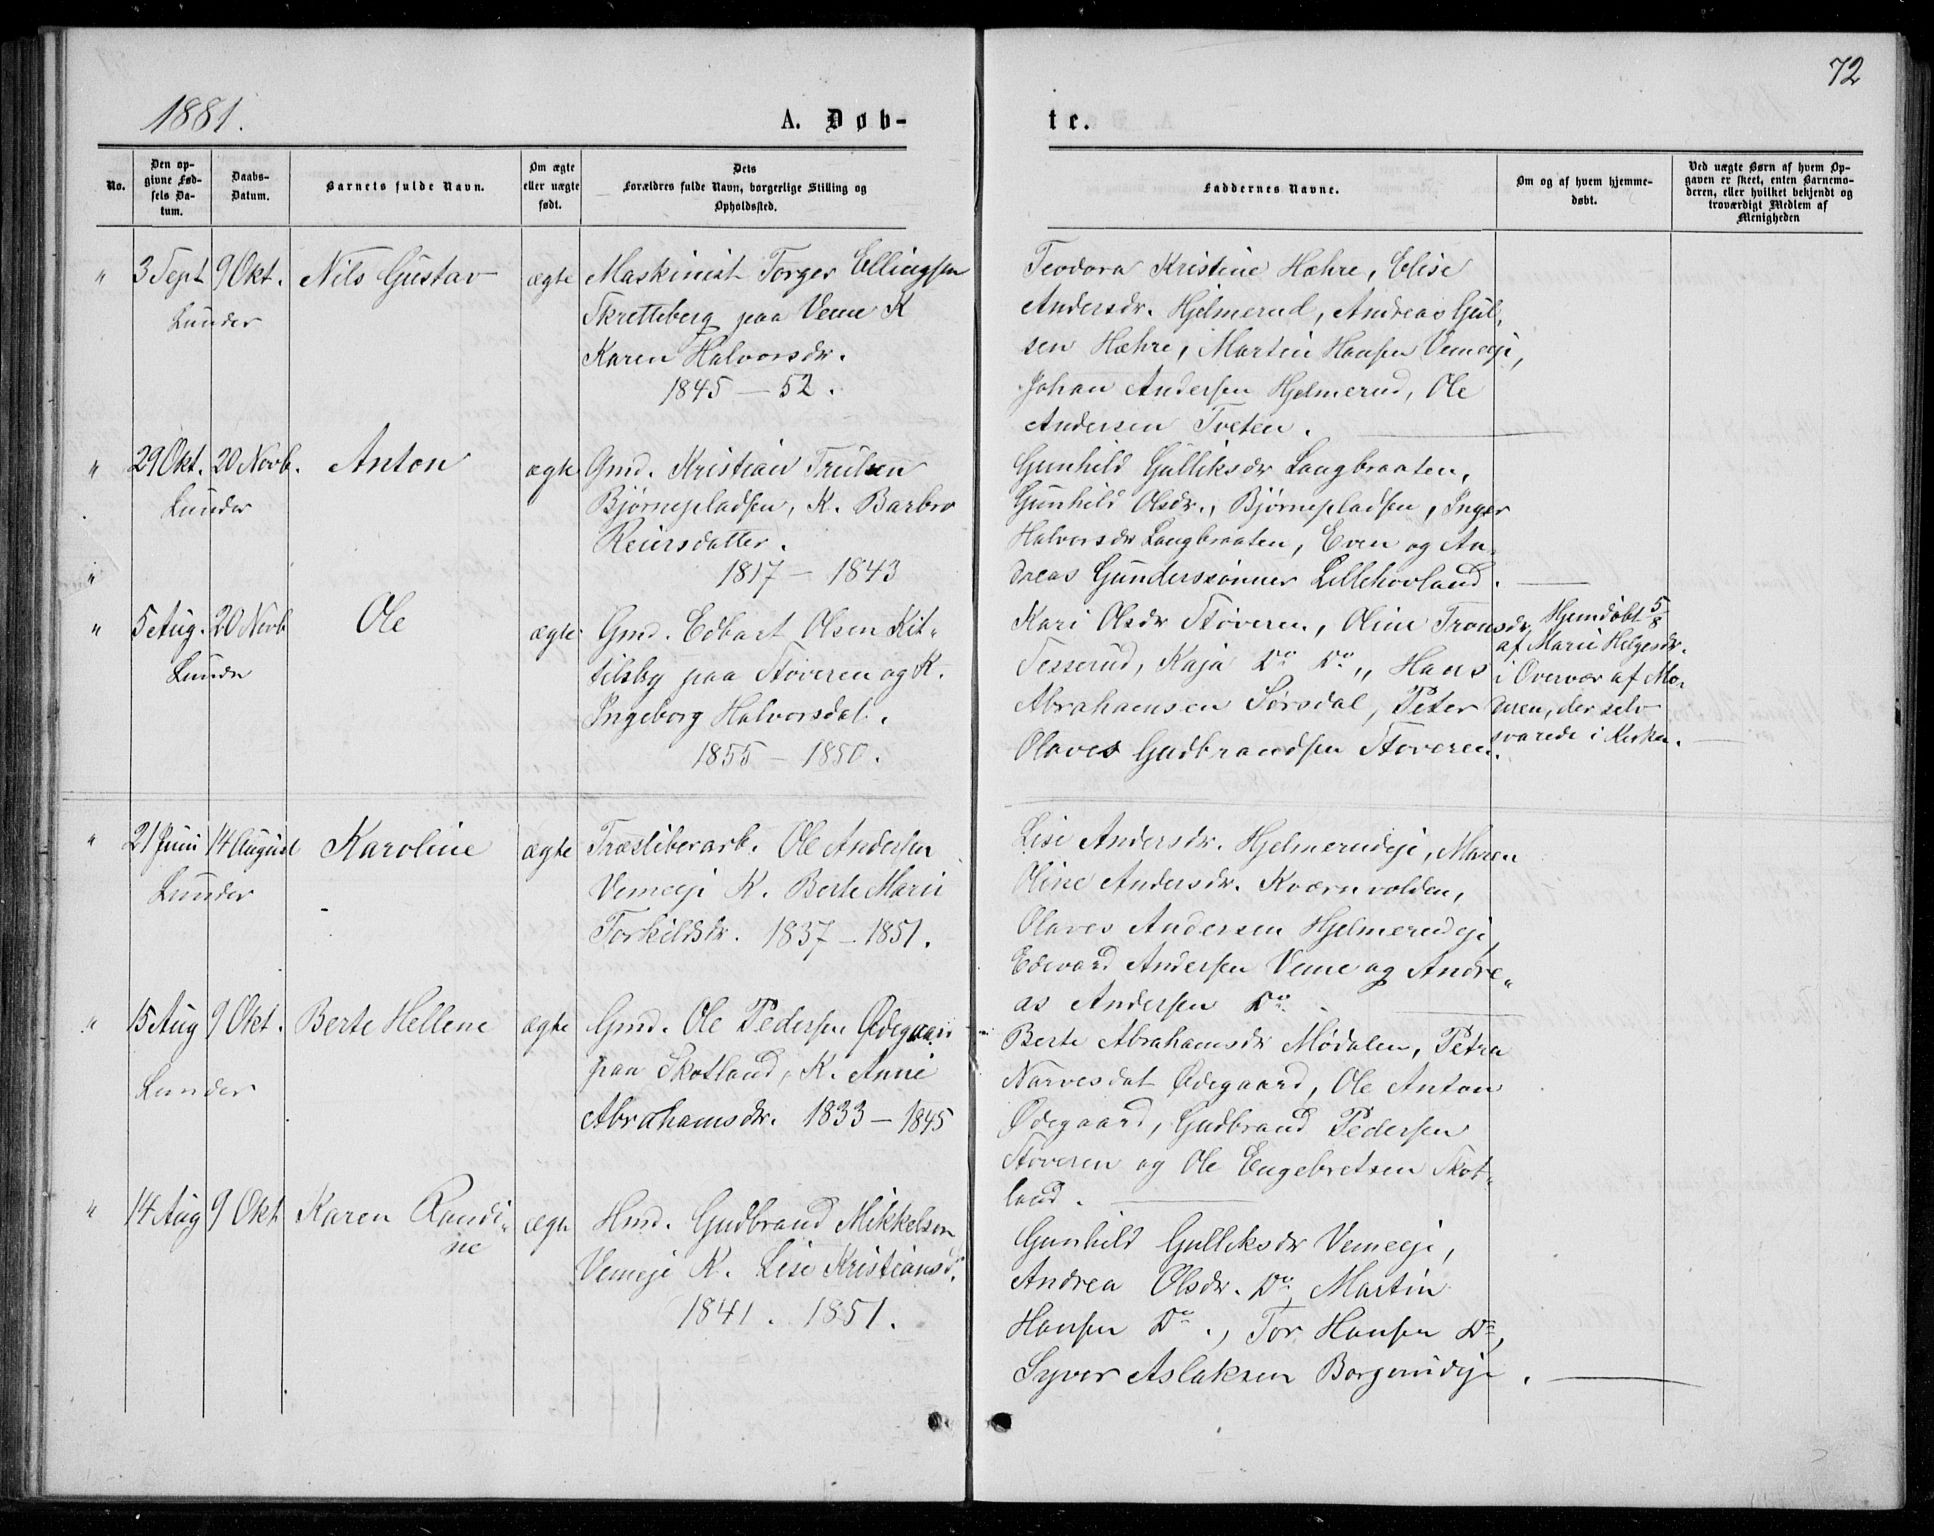 72
1881.
A. Døb-
te.
No.
Den op-
givne Fød-
sels Da-
tum.
Daabs-
Datum.
Barnets fulde Navn.
Om ægte
eller uægte
født.
Dets
Forældres fulde Navn, borgerlige Stilling og
Opholdssted.
Faddernes Navne.
Om og af hvem hjemme-
døbt.
Ved uægte Børn af hvem Op-
gaven er skeet, enten Barnemo-
deren, eller hvilket bekjendt og
troværdigt Medlem af
Menigheden
" 3 Sept 9 Okt. Nils Gustav ægte Maskinist Torger Ellingsen
Lunder
Skretteberg paa Veme K
Karen Halvorsdr.
1845 – 52.
Teodora Kristine Hæhre, Elise
Andersdr. Hjelmerud, Andreas Gul-
sen Hæhre, Martin Hansen Vemeeje,
Johan Andersen Hjelmerud, Ole
Andersen Tveten.
" 29 Okt. 20 Novb. Anton ægte Gmd. Kristian Trulsen
Lunder
Bjørnepladsen, K. Barbro
Reiersdatter.
1817 – 1843
Gunhild Gulliksdr Langbraaten,
Gunhild Olsdr., Bjørnepladsen, Inger
Halvorsdr Langbraaten, Even og An-
dreas Gunderssønner Lillehovland.
"
" 5 Aug. 20 Novb Ole ægte Gmd. Edbart Olsen Kit-
Lunde
tilsby paa Støveren og K.
Ingeborg Halvorsdat.
1855 – 1850.
Kari Olsdr Støveren, Oline Tronsdr
Tesserud, Kaja Do Do, Hans
Abrahamsen Sørsdal, Peter
Olaves Gudbrandsen Støveren.
Hjemdøbt 5/8
af Marie Helgesdr.
i Overvær af Mo-
deren, der selv
svarede i Kirken.
" 21 Juni 14 August Karoline ægte Træsliberarb. Ole Andersen
Lunder
Vemeeje K. Berte Marie
Torkildsdr. 1837 – 1851.
Lise Andersdr. Hjelmerudeje, Maren
Oline Andersdr. Kværnvolden,
Olaves Andersen Hjelmerudeje,
Edevard Andersen Veme og Andre-
as Andersen Do.
" 15 Aug 9 Okt. Berte Hellene ægte Gmd. Ole Pedersen Ødegaard
Lunder
paa Skotland, K. Anne
Abrahamsdr. 1833 – 1845
Berte Abrahamsdr Mødalen, Petra
Narvesdat Ødegaard, Ole Anton
Ødegaard, Gudbrand Pedersen
Støveren og Ole Engebretsen Skot-
land.
" 14 Aug 9 Okt Karen Randi-
ne
ægte Hmd. Gudbrand Mikkelsen
Vemeje K. Lise Kristiansd.
1841. 1851.
Gunhild Gulliksdr Vemeeje,
Andrea Olsdr. Do, Martin
Hansen Do., Tor Hansen Do,
Syver Aslaksen Borgerudeje.